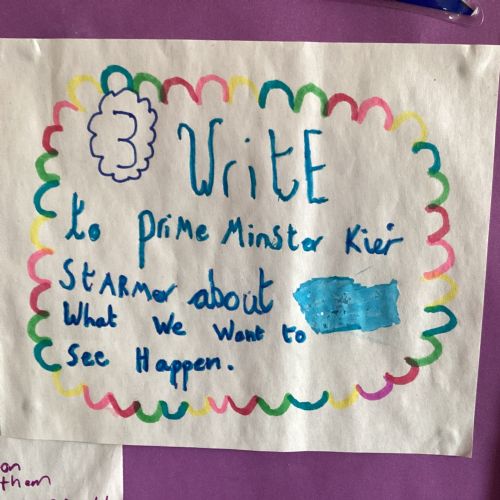 3
WritE
to Prime Minster Kier
StARMer about
What We Want to
See Happen.
on
them